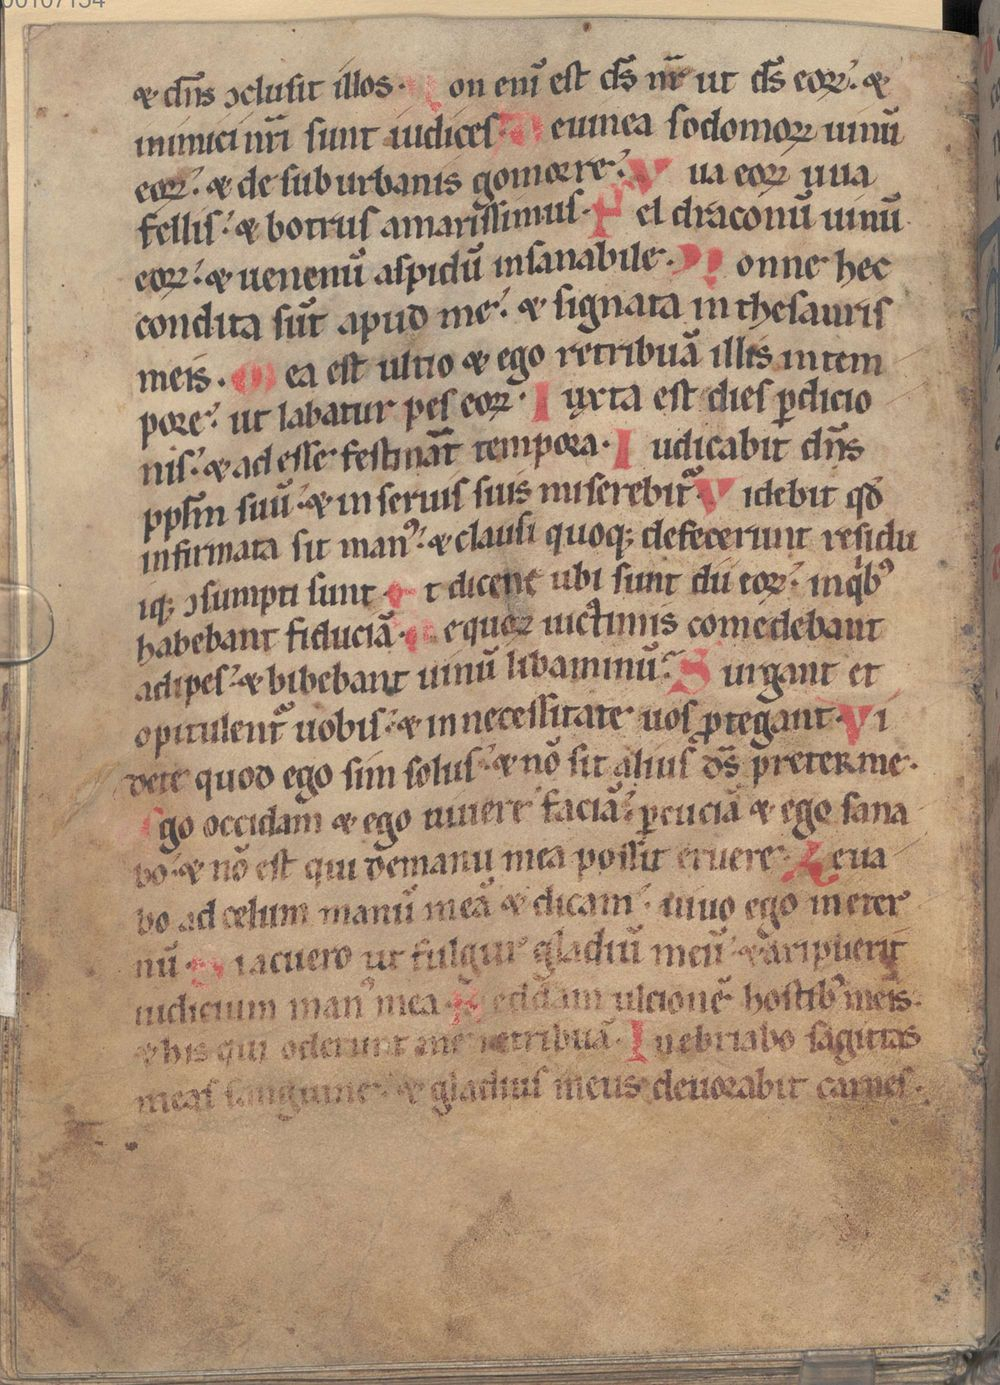 00107154
⁊ dn̄s ↄclusit illos. Non eni̅ est ds̄ nr̄ ut ds̄ eoꝝ. ⁊
inimici nr̄i sunt iudices. De uinea sodomoꝝ uinū
eoꝝ. ⁊ de suburbanis gomorre. Vua eoꝝ uua
fellis. ⁊ botrus amarissimus. Fel draconū uinū
eoꝝ. ⁊ uenenū aspidū insanabile. Nonne hec
condita sūt apud me. ⁊ signata in thesauris
meis. Mea est ultio ⁊ ego retribuā illis in tem
pore. ut labatur pes eoꝝ. Iuxta est dies ꝑdicio
nis. ⁊ adesse festināt tempora. Iudicabit dn̄s
ppl̄m suū. ⁊ in seruis suis miserebit᷑. Videbit qd̄
infirmata sit manꝰ. ⁊ clausi quoqꝫ defecerunt residu
iqꝫ ↄsumpti sunt. Et dicent ubi sunt dii eoꝝ. in qͥbꝰ
habebant fiduciā. De quoꝝ uictimis comedebant
adipes. ⁊ bibebant uinū libaminū. Surgant et
opitulent᷑ uobis. ⁊ in necessitate uos ꝓtegant. Vi
dete quod ego sim solus. ⁊ nō sit alius ds̄ preter me.
Ego occidam ⁊ ego uiuere faciā. ꝑcuciā ⁊ ego sana
bo. ⁊ nō est qui de manu mea possit eruere. Leua
bo ad celum manū meā ⁊ dicam. uiuo ego in eter
nū. Si acuero ut fulgur gladiū meū. ⁊ aripuerit
iudicium manꝰ mea. Reddam ulcionē hostibꝰ meis.
⁊ his qui oderunt me retribuā. Inebriabo sagittas
meas sanguine. ⁊ gladius meus deuorabit carnes.